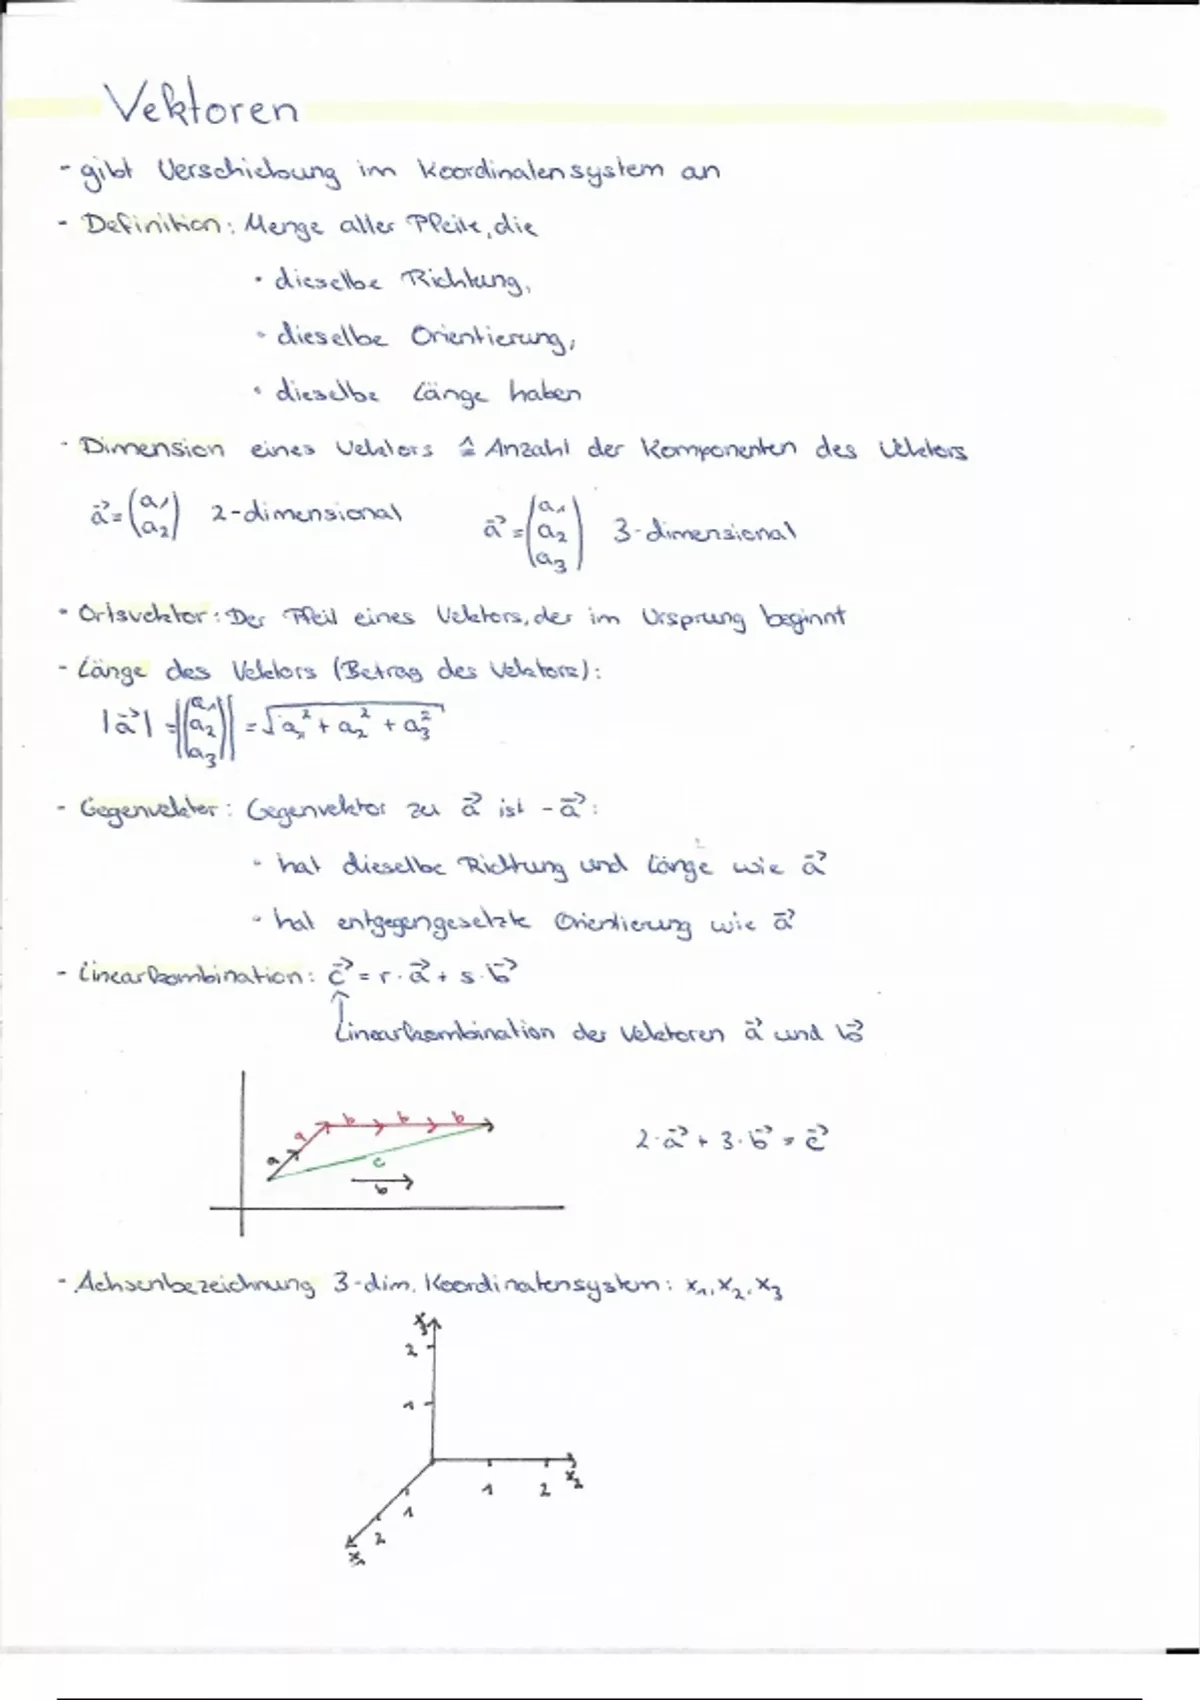 Vektoren
- gibt Verschiebung im Koordinatensystem an
- Definition: Menge aller Pfeile, die
• dieselbe Richtung,
• dieselbe Orientierung,
• dieselbe Länge haben
- Dimension eines Vektors ≙ Anzahl der Komponenten des Vektors
a⃗ = (a₁ a₂) 2-dimensional a⃗ = (a₁ a₂ a₃) 3-dimensional
- Ortsvektor: Der Pfeil eines Vektors, der im Ursprung beginnt
- Länge des Vektors (Betrag des Vektors):
|a⃗| = |(a₁ a₂ a₃)| = √(a₁² + a₂² + a₃²)
- Gegenvektor: Gegenvektor zu a⃗ ist -a⃗:
• hat dieselbe Richtung und Länge wie a⃗
• hat entgegengesetzte Orientierung wie a⃗
- Linearkombination: c⃗ = r · a⃗ + s · b⃗
Linearkombination der Vektoren a⃗ und b⃗
a a b b b
c
b
2 · a⃗ + 3 · b⃗ = c⃗
- Achsenbezeichnung 3-dim. Koordinatensystem: x₁, x₂, x₃
x₃
2
1
1 2 x₂
1
2
x₁